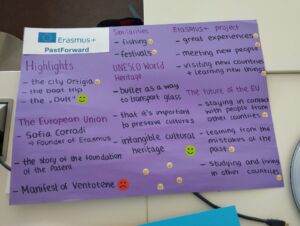 Erasmus+
PastForward
Highlights
- the city Ortigia
- the boat trip
- the "
The European Union
- Sofia Corradi
→ Founder of Erasmus
- the story of the foundation
of the
- Manifest of Ventotene
Similarities
- fishing
- festivals
UNESCO World
Heritage
- butter as a way
to transport glass
- that it's important
to preserve cultures
- intangible cultural
heritage
Erasmus+ project
- great experiences
- meeting new people
- visiting new countries
+ learning new things
The future of the EU
- staying in contact
with people from
other countries
- learning from the
mistakes of the
past
- studying and living
in other countries